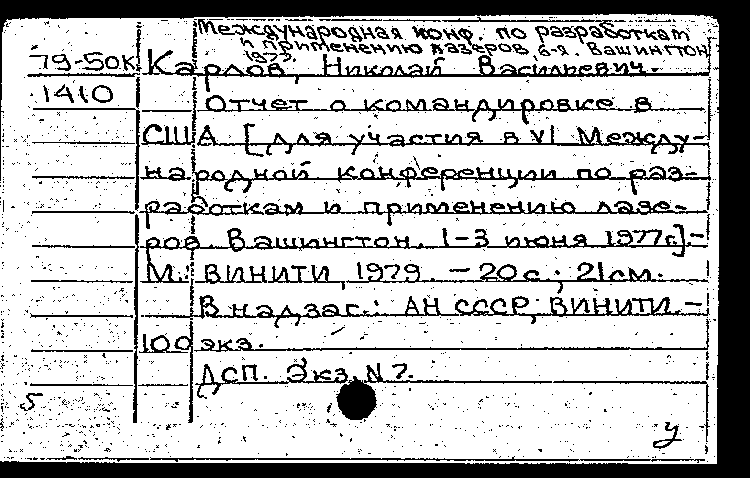 Международная конф. по разработкам
и применению лазеров, 6-я. Вашингтон
1977.
79-50к Карлов, Николай Васильевич.
1410 Отчет о командировке в
США [для участия в VI Между-
народной конференции по раз-
работкам и применению лазе-
ров. Вашингтон. 1-3 июня 1977г.].-
М.: ВИНИТИ, 1979. - 20с.; 21см.
В надзаг.: АН СССР, ВИНИТИ. -
100 экз.
ДСП. Экз. N 7.
5
у